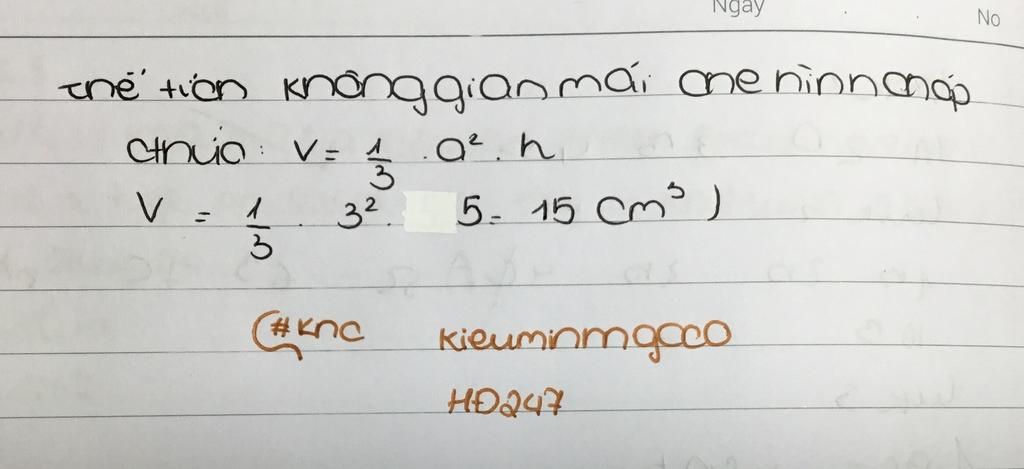 Ngày
No
Thể tích không gian mái che hình chóp
chứa: V = 1/3 . a² . h
V = 1/3 . 3² . 5 = 15 cm³ )
(#knc kieuminmgoco
HĐ247